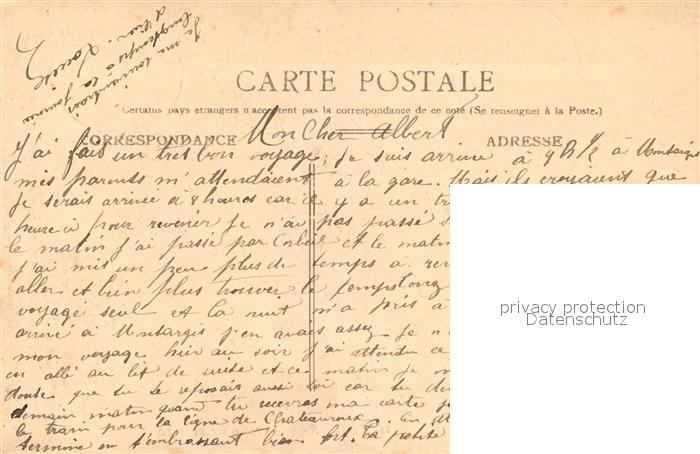 Je me souviendrai
longtemps de la journée
d'hier. Louise
CARTE POSTALE
Certains pays étrangers n'acceptent pas la correspondance de ce côté (Se renseigner à la Poste.)
CORRESPONDANCE
ADRESSE
Mon Cher Albert
J'ai fait un tres bon voyage, je suis arrivée à 9 h ½ à Montargis
mes parents m'attendaient à la gare. Mais ils croyaient que
je serais arrivée à 8 heures car il y a un
heure ci pour revenir je n'ai pas passé
le matin j'ai passé par Corbeil et le matin
j'ai mis un peu plus de temps a
aller et bien plus trouver le temps long
voyagé seul et la nuit m'a pris à
arrivé à Montargis j'en avais assez je
mon voyage hier au soir j'ai attendu ce
en allé au lit de suite et ce matin je
doute que tu te reposais aussi toi car tu
demain matin quant tu recevras ma carte
le train pour la ligne de Chateauroux. En
termine en t'embrassant bien fort. Ta petite
privacy protection
Datenschutz